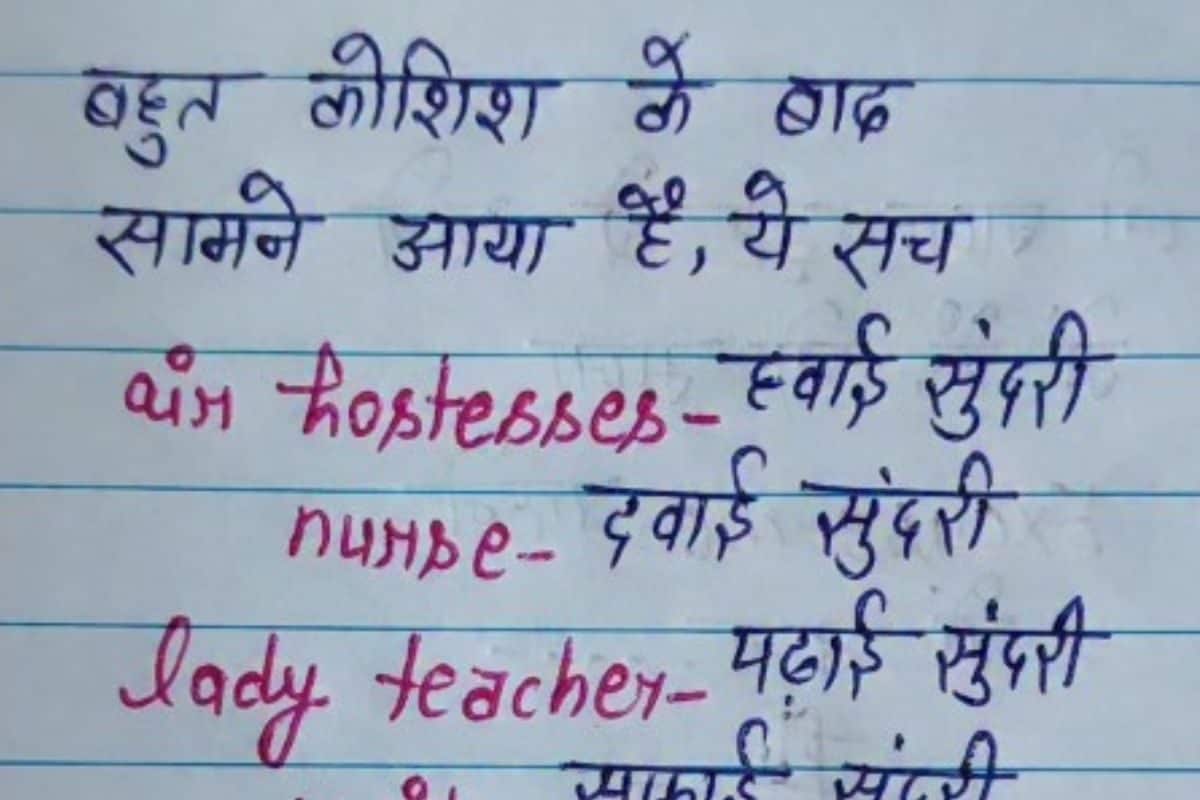 बहुत कोशिश के बाद
सामने आया है, ये सच
air hostesses - हवाई सुंदरी
nurse - दवाई सुंदरी
lady teacher - पढ़ाई सुंदरी
सफाई सुंदरी